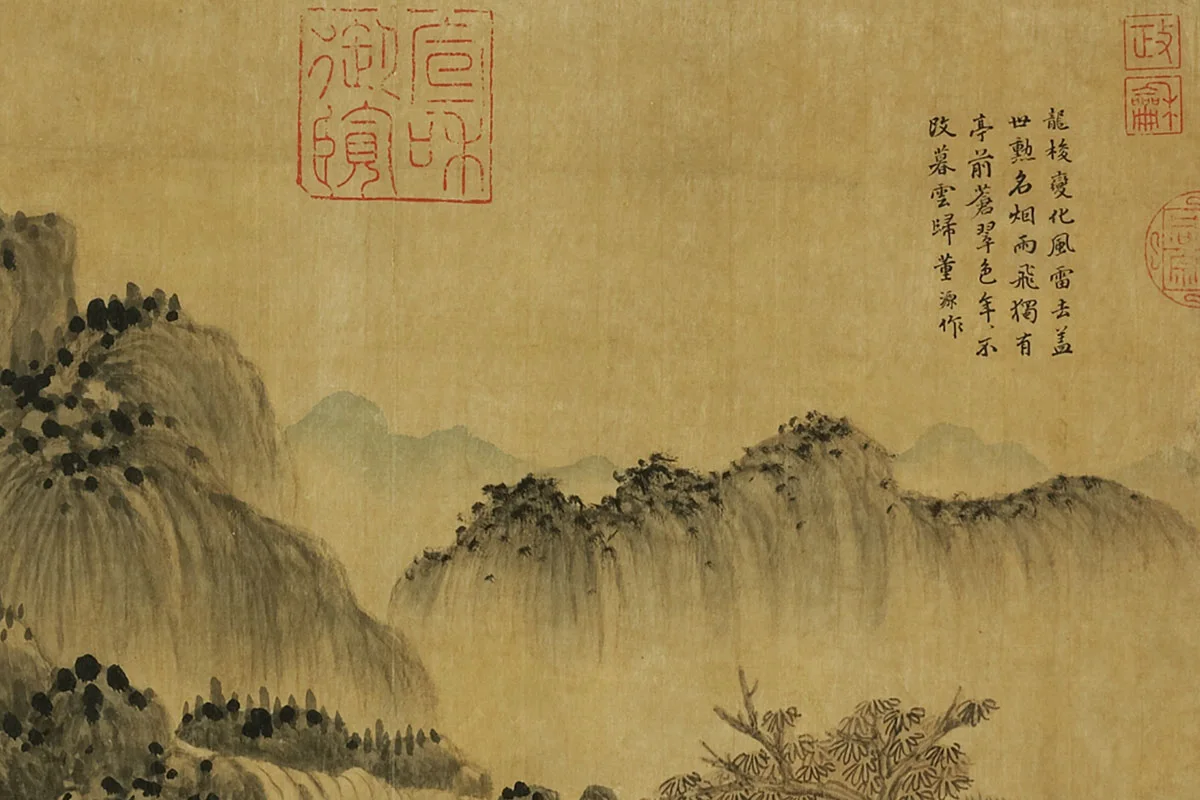 政龢
龍梭變化風雷去蓋
世勲名烟雨飛獨有
亭前蒼翠色年、不
改暮雲歸董源作